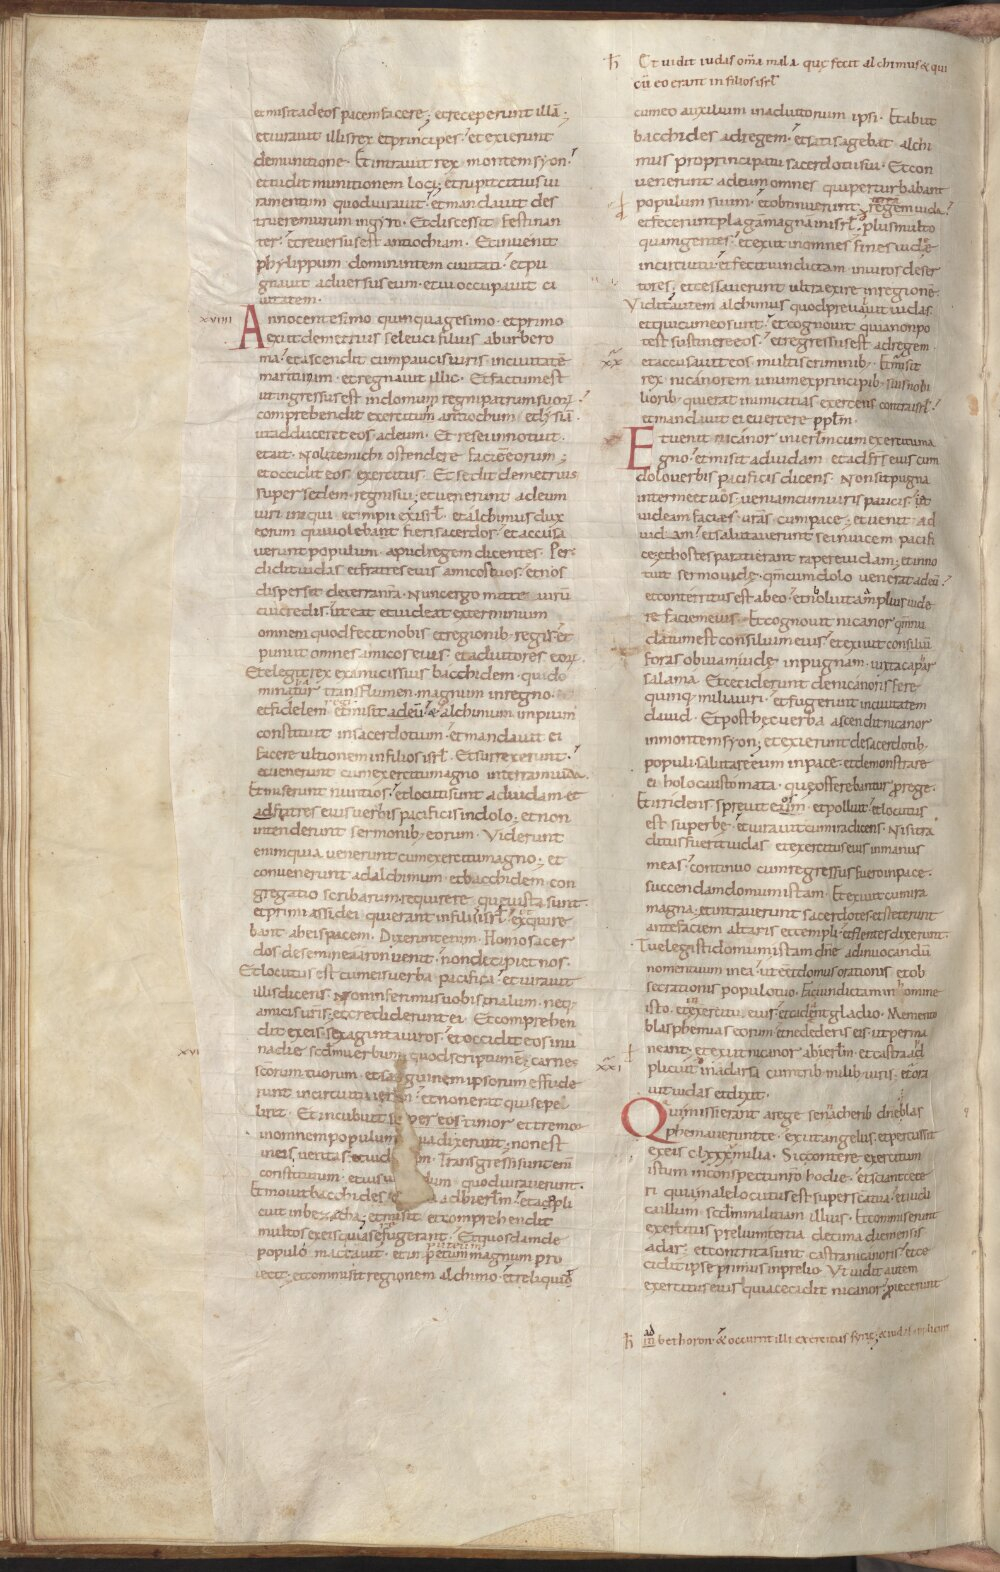 et misit ad eos pacem facere; et receperunt illā;
et iuravit illis rex et principes; et exierunt
de munitione. Et intravit rex montem syon;
et vidit munitionem loci; et rupit citius iu
ramentum quod iuravit; et mandavit des
truere murum in gyro. Et discessit festinan
ter; et reversus est antiochiam. Et invenit
phylippum dominantem civitati; et pu
gnavit adversus eum. et occupavit ci
vitatem.
xviiii
Anno centesimo quinquagesimo. et primo
exiit demetrius seleuci filius ab urbe ro
ma; et ascendit cum paucis viris in civitatē
maritimam. et regnavit illic. Et factum est
ut ingressus est in domum regni patrum suorū;
comprehendit exercitum antiochum. et lysiā
ut adduceret eos ad eum. Et res ei innotuit.
et ait. Nolite michi ostendere faciem eorum;
et occidit eos exercitus. Et sedit demetrius
super sedem regni sui; et venerunt ad eum
viri iniqui. et impii ex isrl. et alchimus dux
eorum qui volebant fieri sacerdos. et accusa
verunt populum apud regem dicentes. Per
didit iudas et fratres eius amicos tuos; et nos
dispersit de terra nra. Nunc ergo mitte virū
cui credis. ut eat et videat exterminium
omnem quod fecit nobis et regionib. regis; et
puniat omnes amicos eius. et adiutores eorū.
Et elegit rex ex amicis suis bacchidem. qui do
minatur trans flumen magnum in regno.
et fidelem regi; et misit ad eū; & alchimum impium
constituit in sacerdotium; et mandavit ei
facere ultionem in filios isrl. Et surrexerunt;
et venerunt cum exercitu magno in terram iuda.
Et miserunt nuntios; et locuti sunt ad iudam. et
ad fratres eius verbis pacificis in dolo; et non
intenderunt sermonib; eorum. Viderunt
enim quia venerunt cum exercitu magno; et
convenerunt ad alchimum. et bacchidem. con
gregatio scribarum. requirere que iusta sunt.
et primi assidei qui erant in filiis isrl; et exquire
bant ab eis pacem. Dixerunt enim. Homo sacer
dos de semine aaron venit; non decipiet nos.
Et locutus est cum eis verba pacifica; et iuravit
illis dicens. Non inferimus vobis malum. neq;
amicis vris; et crediderunt ei. Et comprehen
dit ex eis sexaginta viros; et occidit eos in u
na die scdm verbum quod scriptum ē; carnes
xvi
scorum tuorum. et sanguinem ipsorum effude
runt in circuitu ierlm; et non erat qui sepe
liret. Et incubuit super eos timor et tremor
in omnem populum. quia dixerunt; non est
in eis veritas. et iudicium. Transgressi sunt eni
constitutum. et iusiurandum quod iuraverunt.
Et movit bacchides ab ierlm; et appli
cuit in bezecha; et misit. et comprehendit
multos ex eis qui a se fugerant; Et quosdam de
populo mactavit. et in puteum magnum pro
iecit; et commisit regionem alchimo; et reliquid
ħ Et vidit iudas oma mala que fecit alchimus & qui
cū eo erant in filios isrl
cum eo auxilium in adiutorium ipsi. Et abiit
bacchides ad regem; et satis agebat alchi
mus pro principatu sacerdotii sui. Et con
venerunt ad eum omnes qui perturbabant
populum suum; et obtinuerunt terram iuda;
et fecerunt plagam magnam in isrl. plus multo
quam gentes; et exiit in omnes fines iudeę
in circuitu; et fecit vindictam in viros deser
tores; et cessaverunt ultra exire in regionē.
Vidit autem alchimus quod prevaluit iudas
et qui cum eo sunt; et cognovit quia non po
test sustinere eos; et regressus est ad regem.
xx
et accusavit eos multis criminib; Et misit
rex nicanorem unum ex principib. suis nobi
liorib. qui erat inimicitias exercens contra isrl;
et mandavit ei evertere pplm.
Et venit nicanor in ierlm cum exercitu ma
gno; et misit ad iudam. et ad frs eius cum
dolo verbis pacificis dicens. Non sit pugna
inter me et vos; veniam cum viris paucis. ut
videam facies vras. cum pace; et venit ad
iudam; et salutaverunt se invicem pacifi
ce; et hostes parati erant rapere iudam; et inno
tuit sermo iudę. qm cum dolo venerat ad eū;
et conterritus est ab eo; et noluit amplius vide
re faciem eius. Et cognovit nicanor qm nu
datum est consilium eius; et exivit
foras obviam iudę in pugnam. iuxta caphar
salama. Et ceciderunt de nicanoris fere
quinq. milia viri; et fugerunt in civitatem
david. Et post hęc verba ascendit nicanor
in montem syon; et exierunt de sacerdotib.
populi. salutare eum in pace. et demonstrare
ei holocaustomata. que offerebantur p rege.
Et irridens sprevit eos; et polluit; et locutus
est superbe; et iuravit cum ira dicens. Nisi tra
ditus fuerit iudas et exercitus eius in manus
meas; continuo cum regressus fuero in pace.
succendam domum istam. Et exivit cum ira
magna; et intraverunt sacerdotes. et steterunt
ante faciem altaris et templi; et flentes dixerunt.
Tu elegisti domum istam dne ad invocandū
nomen tuum in ea; ut eēt domus orationis. et ob
secrationis populo tuo. Fac vindictam in homine
isto. et in exercitu eius; et cadant gladio. Memento
blasphemias eorum et ne dederis eis. ut perma
neant; et exiit nicanor ab ierlm. et castra ad
xxi
plicuit in adarsa cum trib. milib. viris; et ora
vit iudas et dixit.
Qui missi erant a rege senacherib dne blas
phemaverunt te; exiit angelus. et percussit
ex eis clxxx milia. Sic contere exercitum
istum in conspectu nro hodie; et sciant cete
ri quia male locutus est super scta tua; et iudi
ca illum. scdm malitiam illius. Et commiserunt
exercitus prelium tertia decima die mensis
adar; et contrita sunt castra nicanoris; et ce
cidit ipse primus in prelio. Ut vidit autem
exercitus eius quia cecidit nicanor; piecerunt
ħ ad bethoron; & occurrit illi exercitus syrię; & iudas applicuit